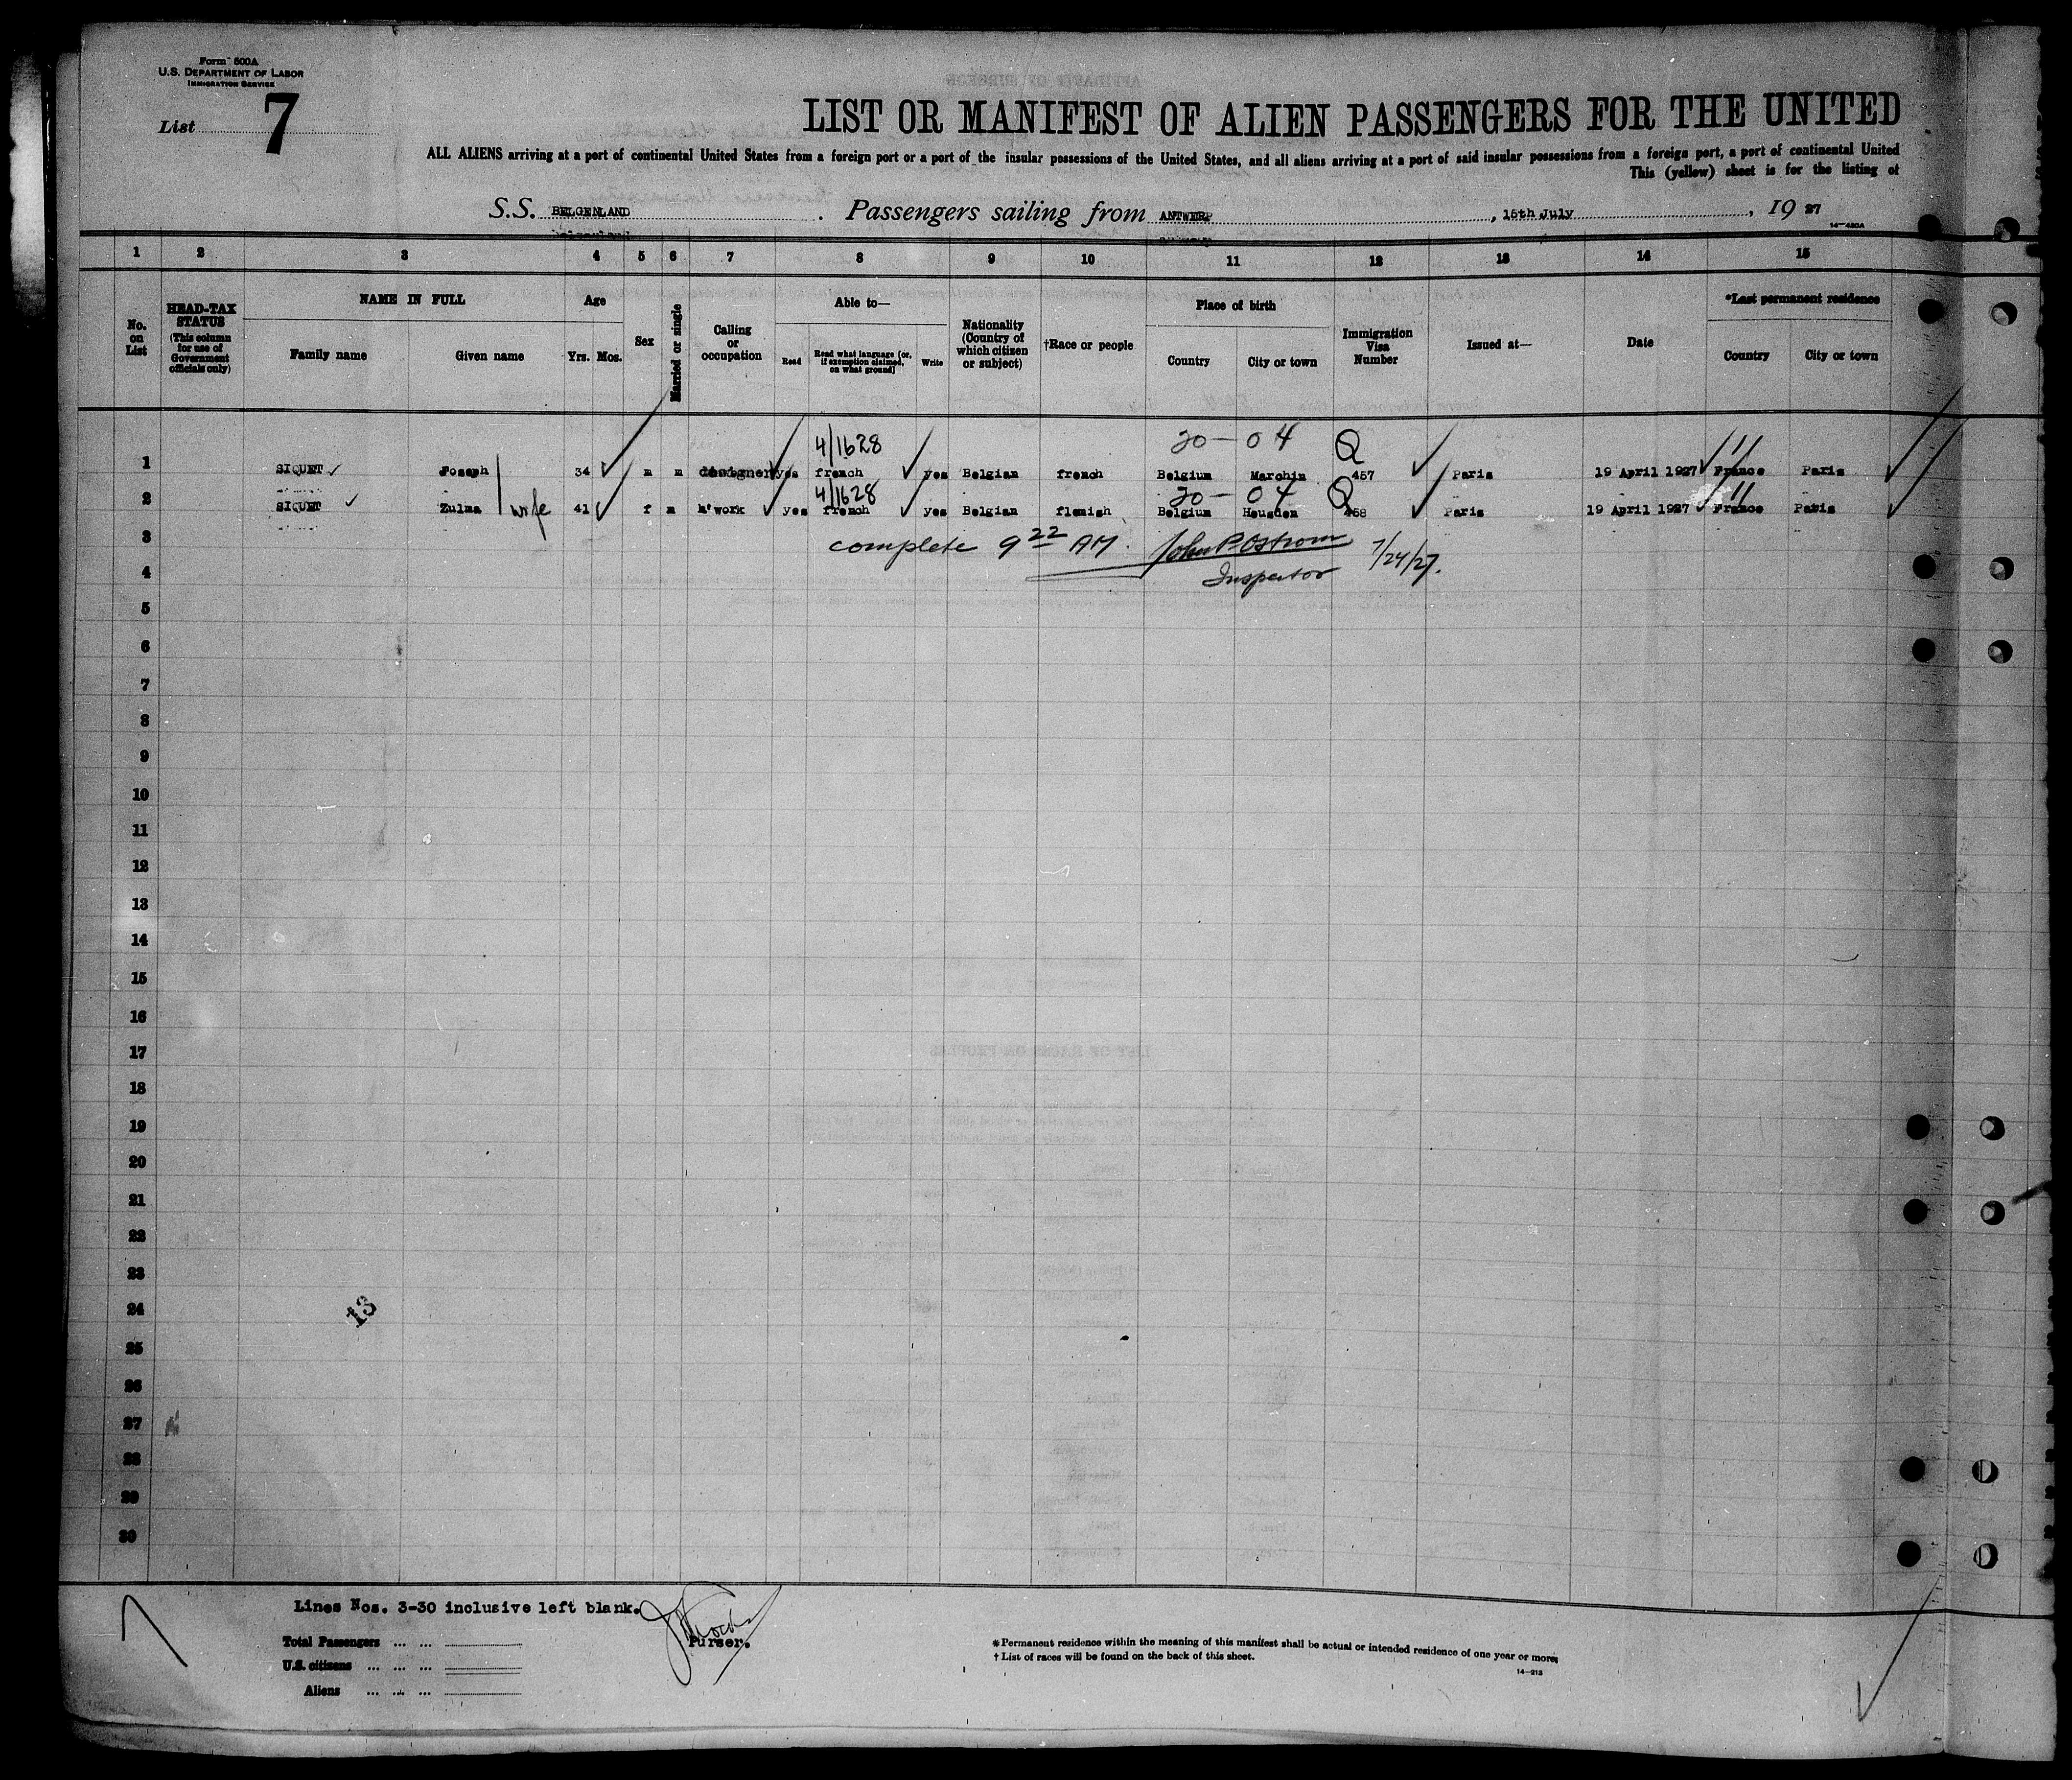 Form 500A
U.S. DEPARTMENT OF LABOR
IMMIGRATION SERVICE
List 7
LIST OR MANIFEST OF ALIEN PASSENGERS FOR THE UNITED
ALL ALIENS arriving at a port of continental United States from a foreign port or a port of the insular possessions of the United States, and all aliens arriving at a port of said insular possessions from a foreign port, a port of continental United
This (yellow) sheet is for the listing of
S.S. BELGENLAND . Passengers sailing from ANTWERP , 15th July , 19 27
14—430A
1 2 3 4 5 6 7 8 9 10 11 12 13 14 15
No. on List
HEAD-TAX STATUS (This column for use of Government officials only)
NAME IN FULL
Family name Given name
Age
Yrs. Mos.
Sex
Married or single
Calling or occupation
Able to—
Read Read what language [or, if exemption claimed, on what ground] Write
Nationality (Country of which citizen or subject)
†Race or people
Place of birth
Country City or town
Immigration Visa Number
Issued at—
Date
*Last permanent residence
Country City or town
4/1628 20—04 Q 11
1 SIQUET Joseph 34 m m designer yes french yes Belgian french Belgium Marchin 457 Paris 19 April 1927 France Paris
4/1628 20—04 Q 11
2 SIQUET Zulma wife 41 f m h'work yes french yes Belgian flemish Belgium Heusden 458 Paris 19 April 1927 France Paris
3 complete 9 22 AM. John P. Ostrom 7/24/27.
4 Inspector
5
6
7
8
9
10
11
12
13
14
15
16
17
18
19
20
21
22
23
24 13
25
26
27
28
29
30
Lines Nos. 3-30 inclusive left blank.
Purser.
Total Passengers ... ...
U.S. citizens ... ... ...
Aliens ... ... ...
* Permanent residence within the meaning of this manifest shall be actual or intended residence of one year or more.
† List of races will be found on the back of this sheet.
14—213